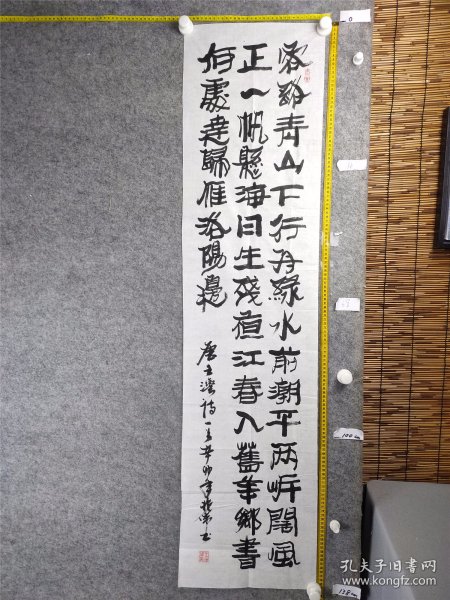 客路青山下行舟綠水前潮平兩岸闊風
正一帆懸海日生殘夜江春入舊年鄉書
何處達歸雁洛陽邊
唐王灣詩一首癸卯年書
0
100cm
138cm
孔夫子旧书网
www.kongfz.com